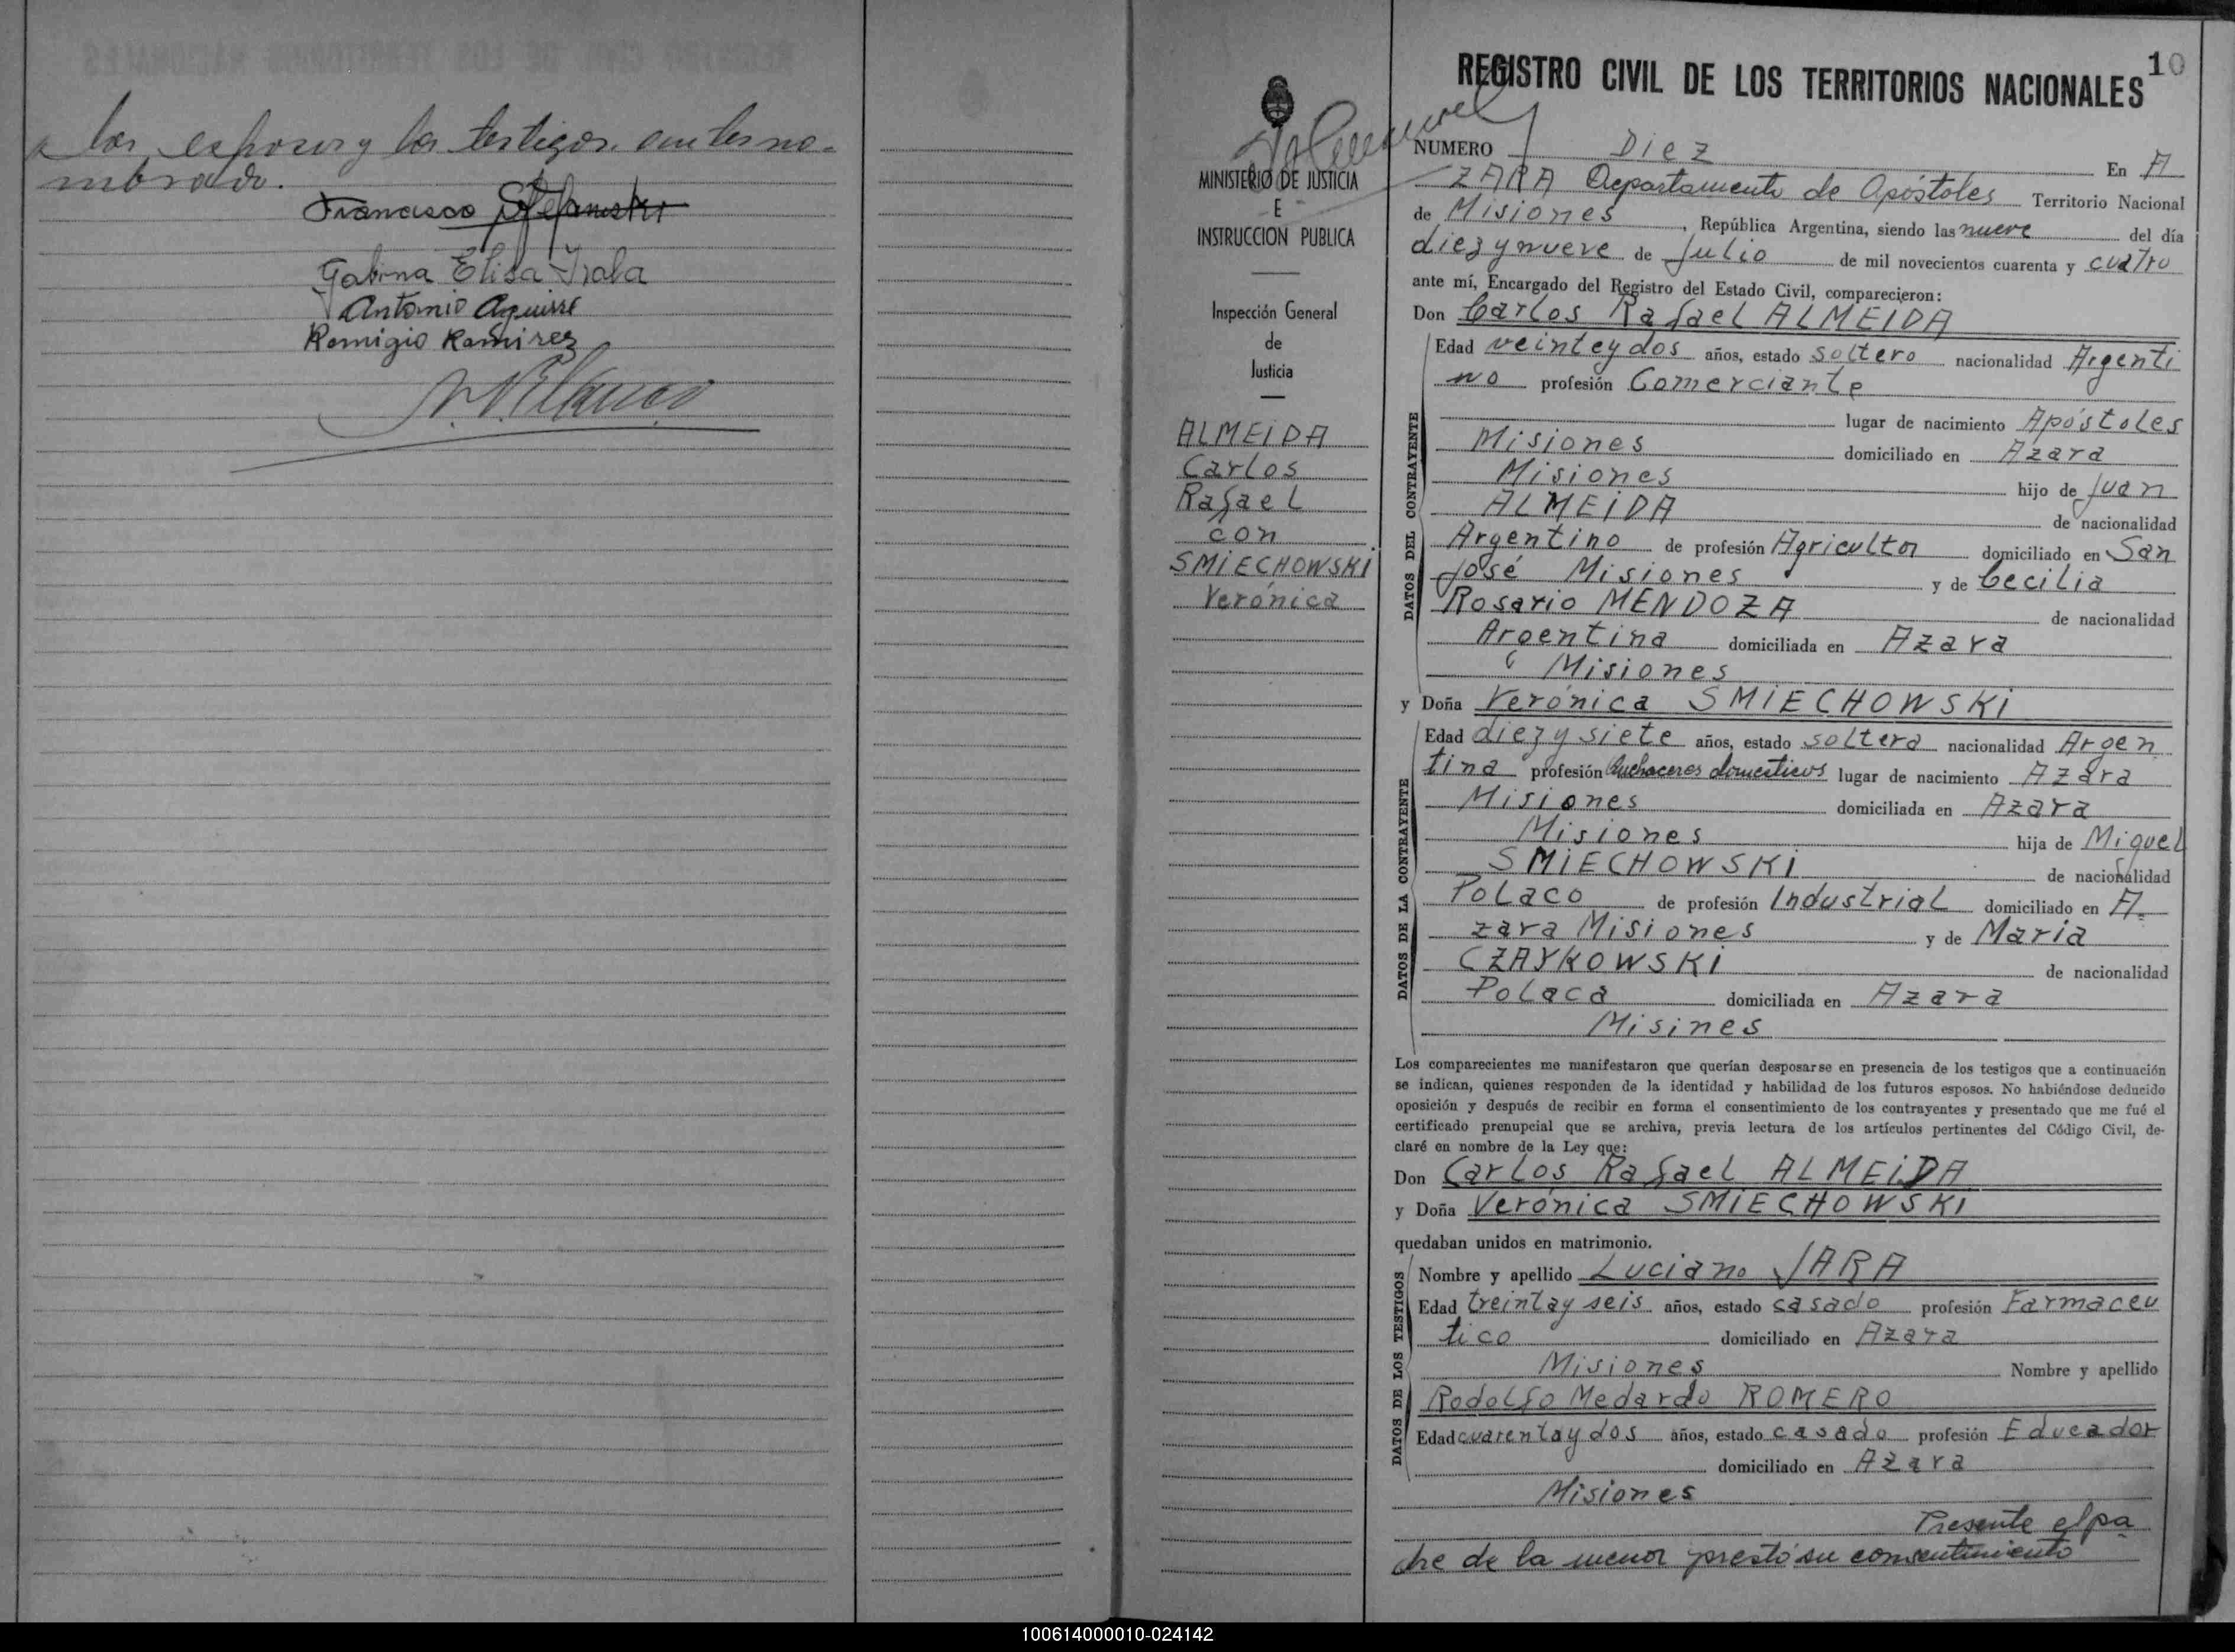 los esposos y los testigos antes no-
mbrado.
Francisco Stefanski
Gabina Elisa Irala
Antonio Aguirre
Remigio Ramirez
10
REGISTRO CIVIL DE LOS TERRITORIOS NACIONALES
MINISTERIO DE JUSTICIA
E
INSTRUCCION PUBLICA
Inspección General
de
Justicia
ALMEIDA
Carlos
Rafael
con
SMIECHOWSKI
Verónica
NUMERO Diez En A
ZARA Departamento de Apóstoles Territorio Nacional
de Misiones, República Argentina, siendo las nueve del día
diez y nueve de Julio de mil novecientos cuarenta y cuatro
ante mí, Encargado del Registro del Estado Civil, comparecieron:
Don Carlos Rafael ALMEIDA
DATOS DEL CONTRAYENTE
Edad veinte y dos años, estado soltero nacionalidad Argenti
no profesión Comerciante
lugar de nacimiento Apóstoles
Misiones domiciliado en Azara
Misiones hijo de Juan
ALMEIDA de nacionalidad
Argentino de profesión Agricultor domiciliado en San
José Misiones y de Cecilia
Rosario MENDOZA de nacionalidad
Argentina domiciliada en Azara
Misiones
y Doña Verónica SMIECHOWSKI
DATOS DE LA CONTRAYENTE
Edad diez y siete años, estado soltera nacionalidad Argen
tina profesión Quehaceres domesticos lugar de nacimiento Azara
Misiones domiciliada en Azara
Misiones hija de Miguel
SMIECHOWSKI de nacionalidad
Polaco de profesión Industrial domiciliado en A-
zara Misiones y de Maria
CZAYKOWSKI de nacionalidad
Polaca domiciliada en Azara
Misines
Los comparecientes me manifestaron que querían desposarse en presencia de los testigos que a continuación
se indican, quienes responden de la identidad y habilidad de los futuros esposos. No habiéndose deducido
oposición y después de recibir en forma el consentimiento de los contrayentes y presentado que me fué el
certificado prenupcial que se archiva, previa lectura de los artículos pertinentes del Código Civil, de-
claré en nombre de la Ley que:
Don Carlos Rafael ALMEIDA
y Doña Verónica SMIECHOWSKI
quedaban unidos en matrimonio.
DATOS DE LOS TESTIGOS
Nombre y apellido Luciano JARA
Edad treinta y seis años, estado casado profesión Farmaceu
tico domiciliado en Azara
Misiones Nombre y apellido
Rodolfo Medardo ROMERO
Edad cuarenta y dos años, estado casado profesión Educador
domiciliado en Azara
Misiones
Presente el pa
dre de la menor prestó su consentimiento
100614000010-024142